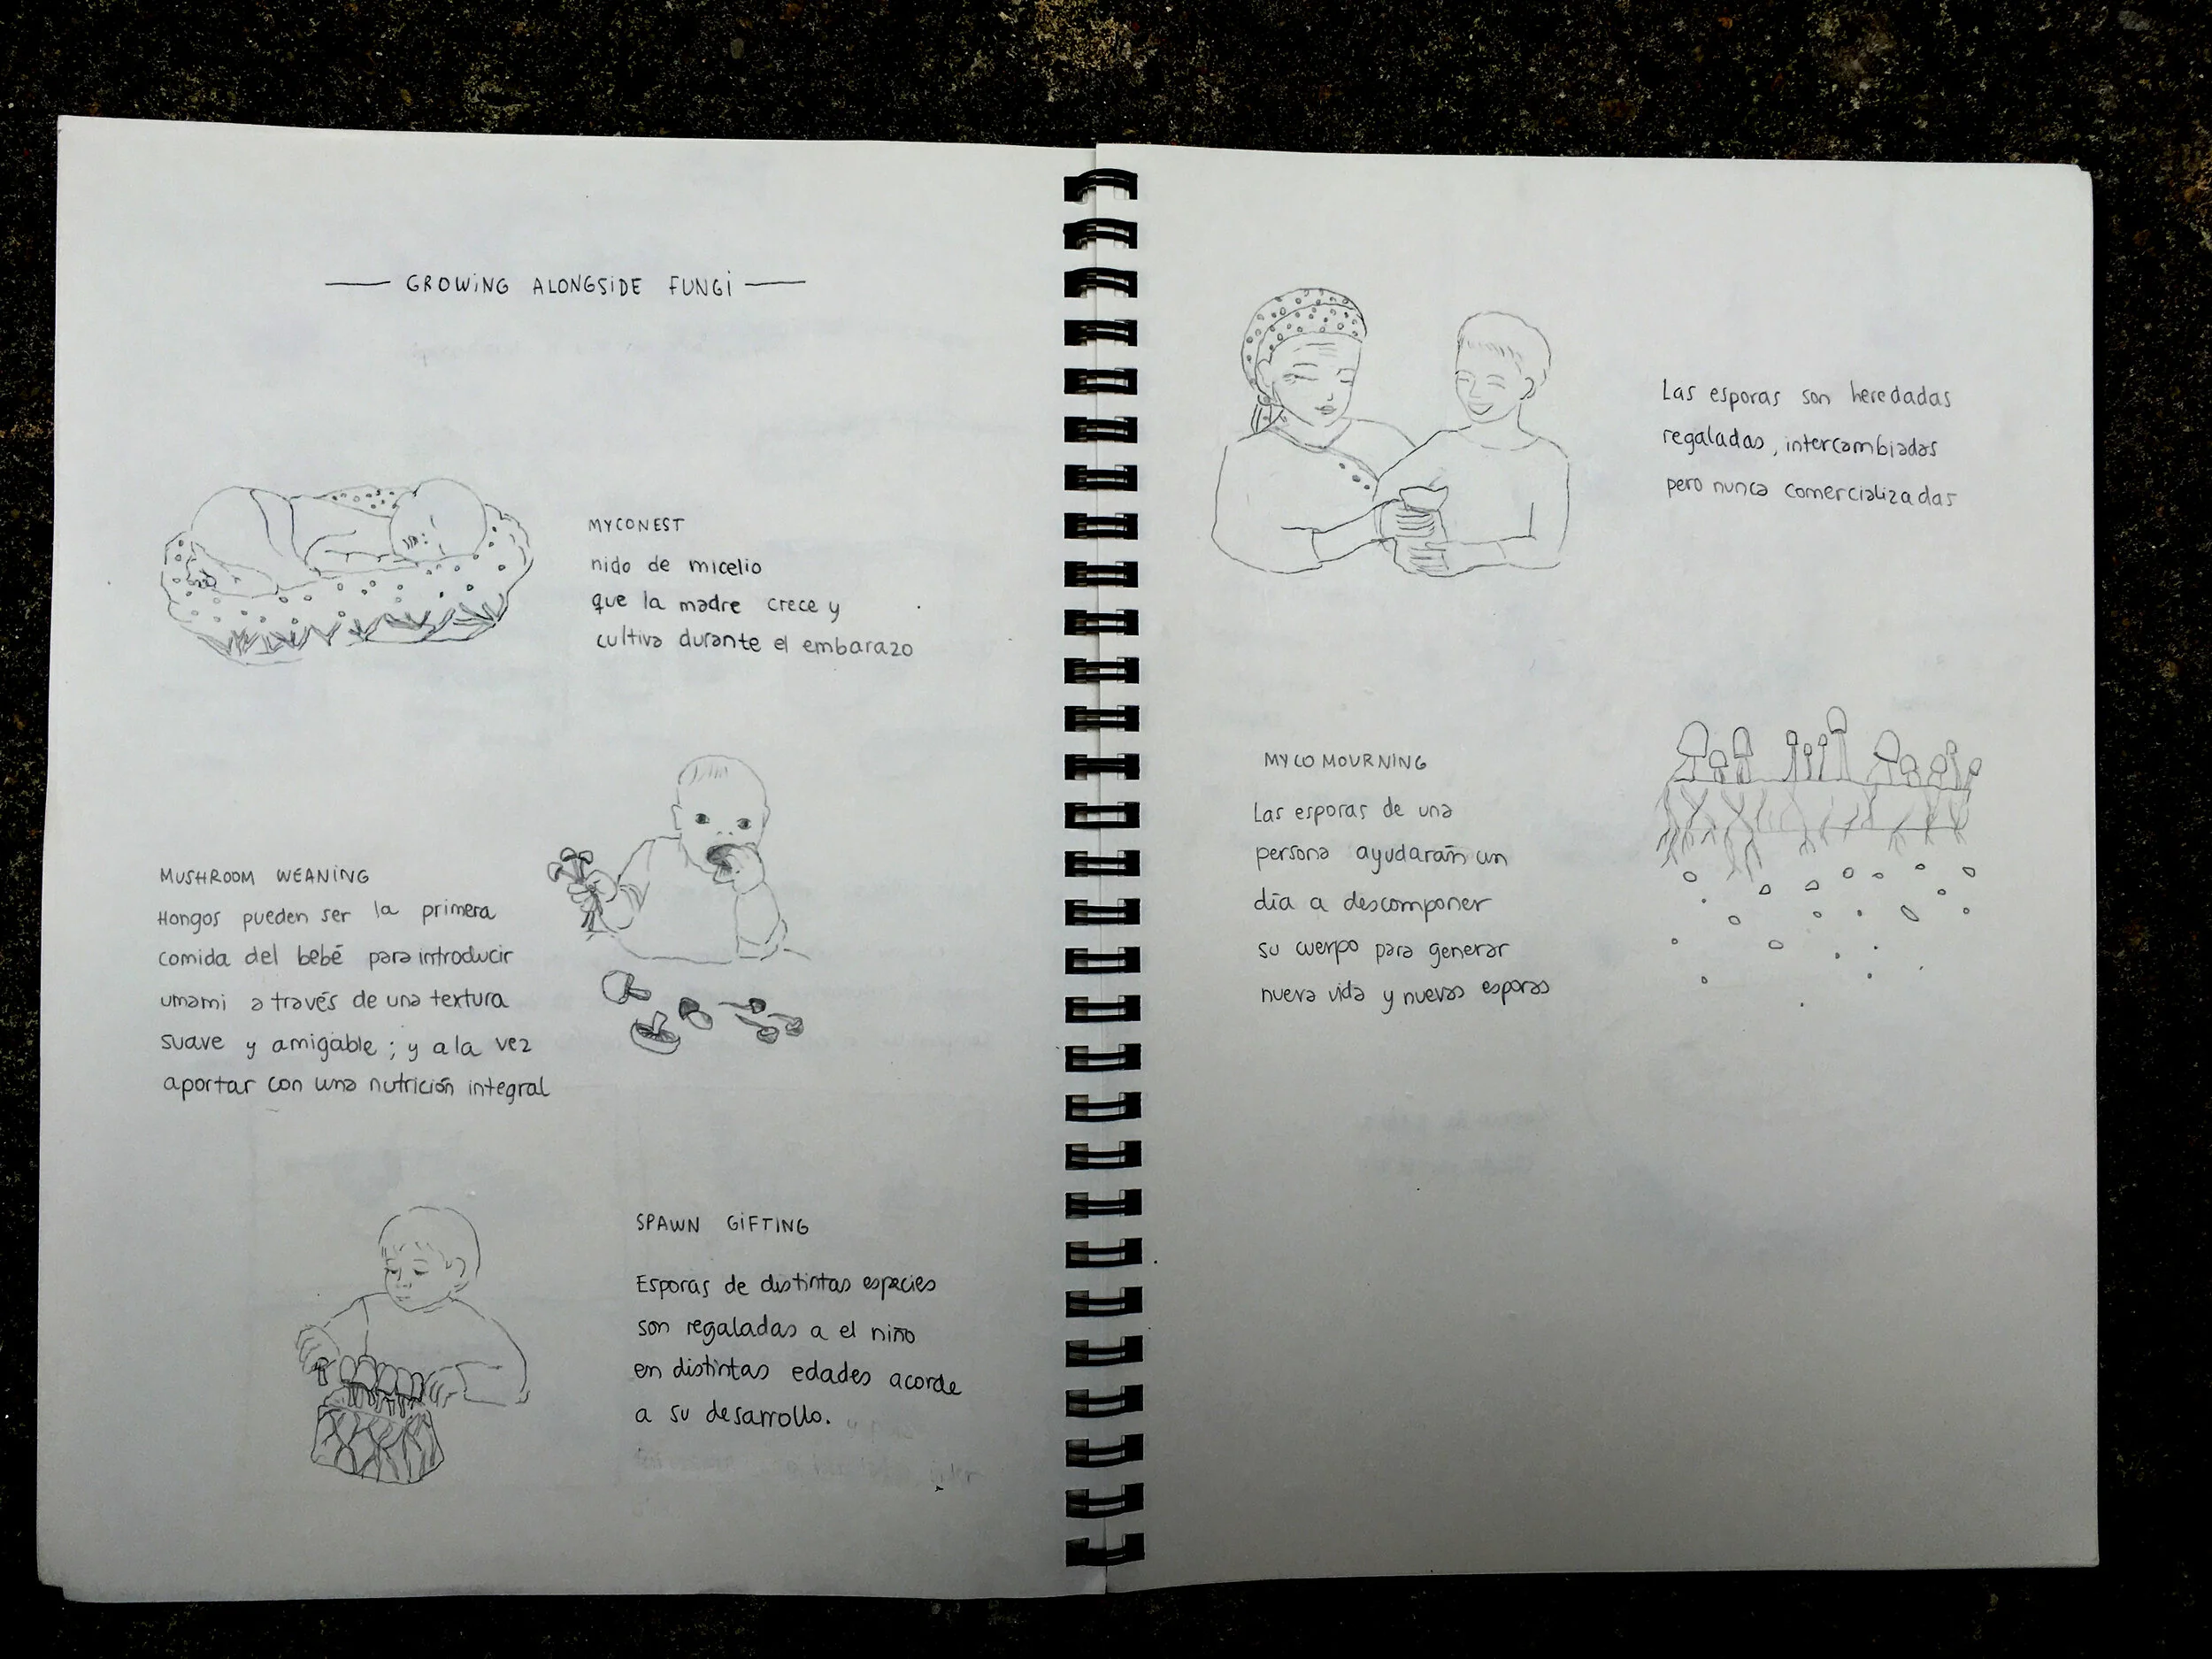 GROWING ALONGSIDE FUNGI
MYCONEST
nido de micelio
que la madre crece y
cultiva durante el embarazo
MUSHROOM WEANING
Hongos pueden ser la primera
comida del bebé para introducir
umami a través de una textura
suave y amigable ; y a la vez
aportar con una nutrición integral
SPAWN GIFTING
Esporas de distintas especies
son regaladas a el niño
en distintas edades acorde
a su desarrollo.
Las esporas son heredadas
regaladas, intercambiadas
pero nunca comercializadas
MYCO MOURNING
Las esporas de una
persona ayudarán un
día a descomponer
su cuerpo para generar
nueva vida y nuevas esporas